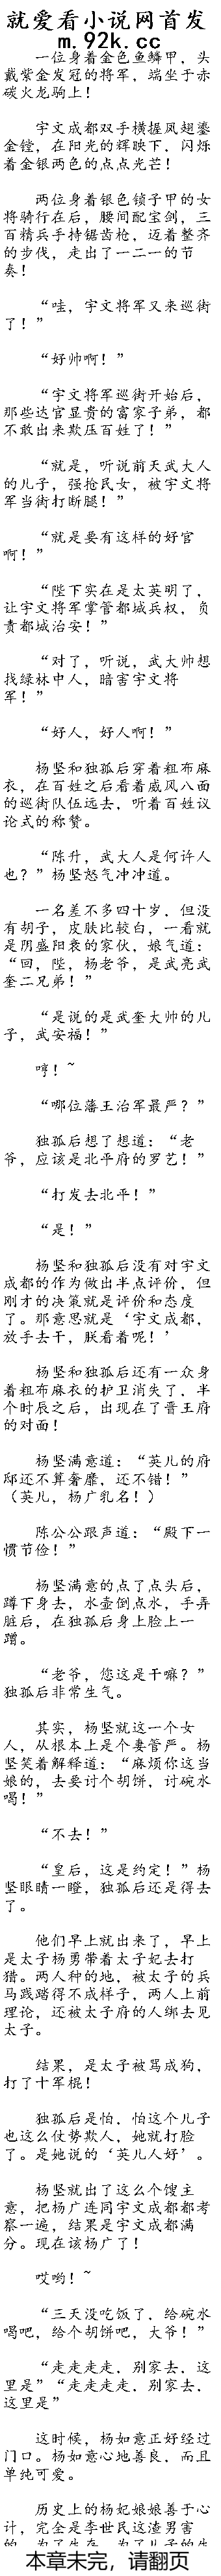 就爱看小说网首发
m.92k.cc
一位身着金色鱼鳞甲，头
戴紫金发冠的将军，端坐于赤
碳火龙驹上！
宇文成都双手横握凤翅鎏
金镗，在阳光的辉映下，闪烁
着金银两色的点点光芒！
两位身着银色锁子甲的女
将骑行在后，腰间配宝剑，三
百精兵手持锯齿枪，迈着整齐
的步伐，走出了一二一的节
奏！
“哇，宇文将军又来巡街
了！”
“好帅啊！”
“宇文将军巡街开始后，
那些达官显贵的富家子弟，都
不敢出来欺压百姓了！”
“就是，听说前天武大人
的儿子，强抢民女，被宇文将
军当街打断腿！”
“就是要有这样的好官
啊！”
“陛下实在是太英明了，
让宇文将军掌管都城兵权，负
责都城治安！”
“对了，听说，武大帅想
找绿林中人，暗害宇文将
军！”
“好人，好人啊！”
杨坚和独孤后穿着粗布麻
衣，在百姓之后看着威风八面
的巡街队伍远去，听着百姓议
论式的称赞。
“陈升，武大人是何许人
也？”杨坚怒气冲冲道。
一名差不多四十岁，但没
有胡子，皮肤比较白，一看就
是阴盛阳衰的家伙，娘气道：
“回，陛，杨老爷，是武亮武
奎二兄弟！”
“是说的是武奎大帅的儿
子，武安福！”
哼！~
“哪位藩王治军最严？”
独孤后想了想道：“老
爷，应该是北平府的罗艺！”
“打发去北平！”
“是！”
杨坚和独孤后没有对宇文
成都的作为做出半点评价，但
刚才的决策就是评价和态度
了。那意思就是‘宇文成都，
放手去干，朕看着呢！’
杨坚和独孤后还有一众身
着粗布麻衣的护卫消失了，半
个时辰之后，出现在了晋王府
的对面！
杨坚满意道：“英儿的府
邸还不算奢靡，还不错！”
（英儿，杨广乳名！）
陈公公跟声道：“殿下一
惯节俭！”
杨坚满意的点了点头后，
蹲下身去，水壶倒点水，手弄
脏后，在独孤后身上脸上一
蹭。
“老爷，您这是干嘛？”
独孤后非常生气。
其实，杨坚就这一个女
人，从根本上是个妻管严。杨
坚笑着解释道：“麻烦你这当
娘的，去要讨个胡饼，讨碗水
喝！”
“不去！”
“皇后，这是约定！”杨
坚眼睛一瞪，独孤后还是得去
了。
他们早上就出来了，早上
是太子杨勇带着太子妃去打
猎。两人种的地，被太子的兵
马践踏得不成样子，两人上前
理论，还被太子府的人绑去见
太子。
结果，是太子被骂成狗，
打了十军棍！
独孤后是怕，怕这个儿子
也这么仗势欺人，她就打脸
了。是她说的‘英儿人好’。
杨坚就出了这么个馊主
意，把杨广连同宇文成都都考
察一遍，结果是宇文成都满
分。现在该杨广了！
哎哟！~
“三天没吃饭了，给碗水
喝吧，给个胡饼吧，大爷！”
“走走走走，别家去，这
里是”“走走走走，别家去，
这里是”
这时候，杨如意正好经过
门口。杨如意心地善良，而且
单纯可爱。
历史上的杨妃娘娘善于心
计，完全是李世民这渣男害
的，为了生存，为了儿子的生
本章未完，请翻页